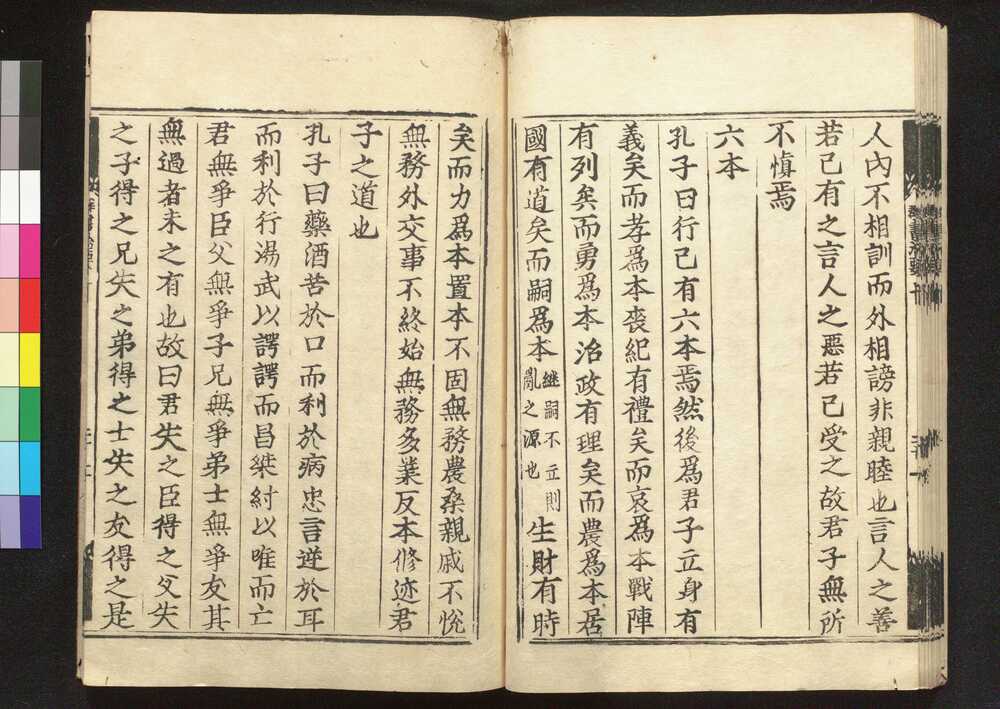 人內不相訓而外相謗非親睦也言人之善
若己有之言人之惡若己受之故君子無所
不慎焉
六本
孔子曰行己有六本焉然後爲君子立身有
義矣而孝爲本喪紀有禮矣而哀爲本戰陣
有列矣而勇爲本治政有理矣而農爲本居
國有道矣而嗣爲本繼嗣不立則亂之源也生財有時
矣而力爲本置本不固無務農桑親戚不悅
無務外交事不終始無務多業反本修迹君
子之道也
孔子曰藥酒苦於口而利於病忠言逆於耳
而利於行湯武以諤諤而昌桀紂以唯而亡
君無爭臣父無爭子兄無爭弟士無爭友其
無過者未之有也故曰君失之臣得之父失
之子得之兄失之弟得之士失之友得之是